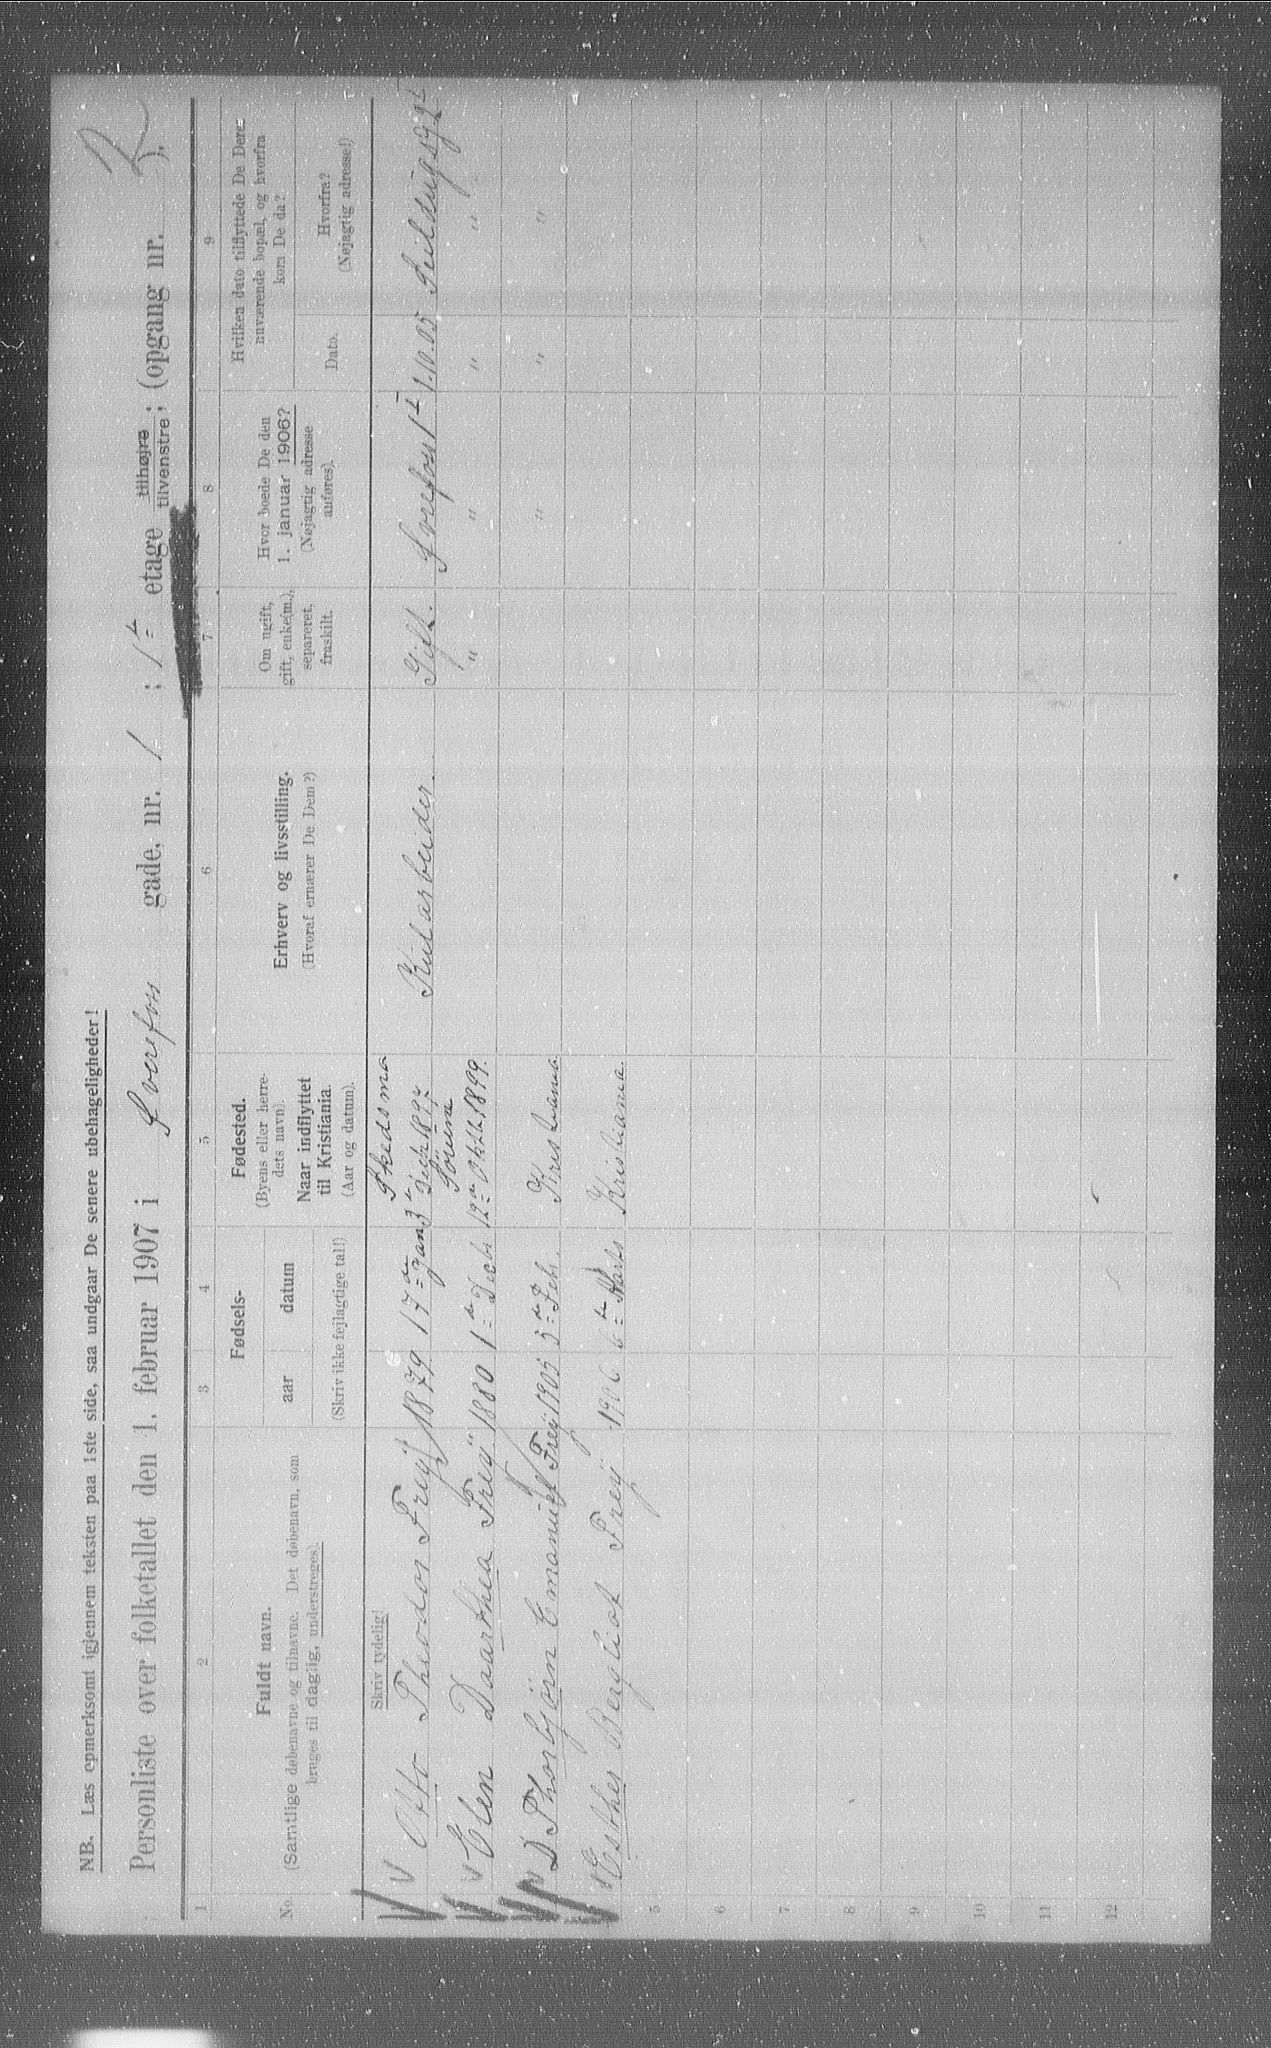 NB. Læs opmerksomt igjennem teksten paa 1ste side, saa undgaar De senere ubehageligheder!
R
Personliste over folketallet den 1. februar 1907 i Sverefos gade, nr. 1 ; 1ste etage tilhøjre ; tilvenstre; (opgang nr. ).
1 2 3 4 5 6 7 8 9
No.
Fuldt navn.
(Samtlige døbenavne og tilnavne. Det døbenavn, som
bruges til daglig, understreges).
Fødsels-
aar datum
(Skriv ikke fejlagtige tal!)
Fødested.
(Byens eller herre-
dets navn).
Naar indflyttet
til Kristiania.
(Aar og datum).
Erhverv og livsstilling.
(Hvoraf ernærer De Dem?)
Om ugift,
gift, enke(m.),
separeret,
fraskilt.
Hvor boede De den
1. januar 1906?
(Nøjagtig adresse
anføres).
Hvilken dato tilflyttede De Deres
nuværende bopæl, og hvorfra
kom De da?
Dato.
Hvorfra?
(Nøjagtig adresse!)
Skriv tydelig!
Otto Theodor Freij 1879 17de Jan Skedsmo 3de Decbr 1897 Kularbeider. Gift. Sverefos 1 1ste 1.10.05
Elen Daarthea Freij 1880 1ste Decb 12te Oktb. 1899. " " " "
D Thorbjörn Emanuel Freij 1905 5te Feb. Kristiania " " "
Esther Bergliot Freij 1906 6te Marts Kristiania.
5
6
7
8
9
10
11
12